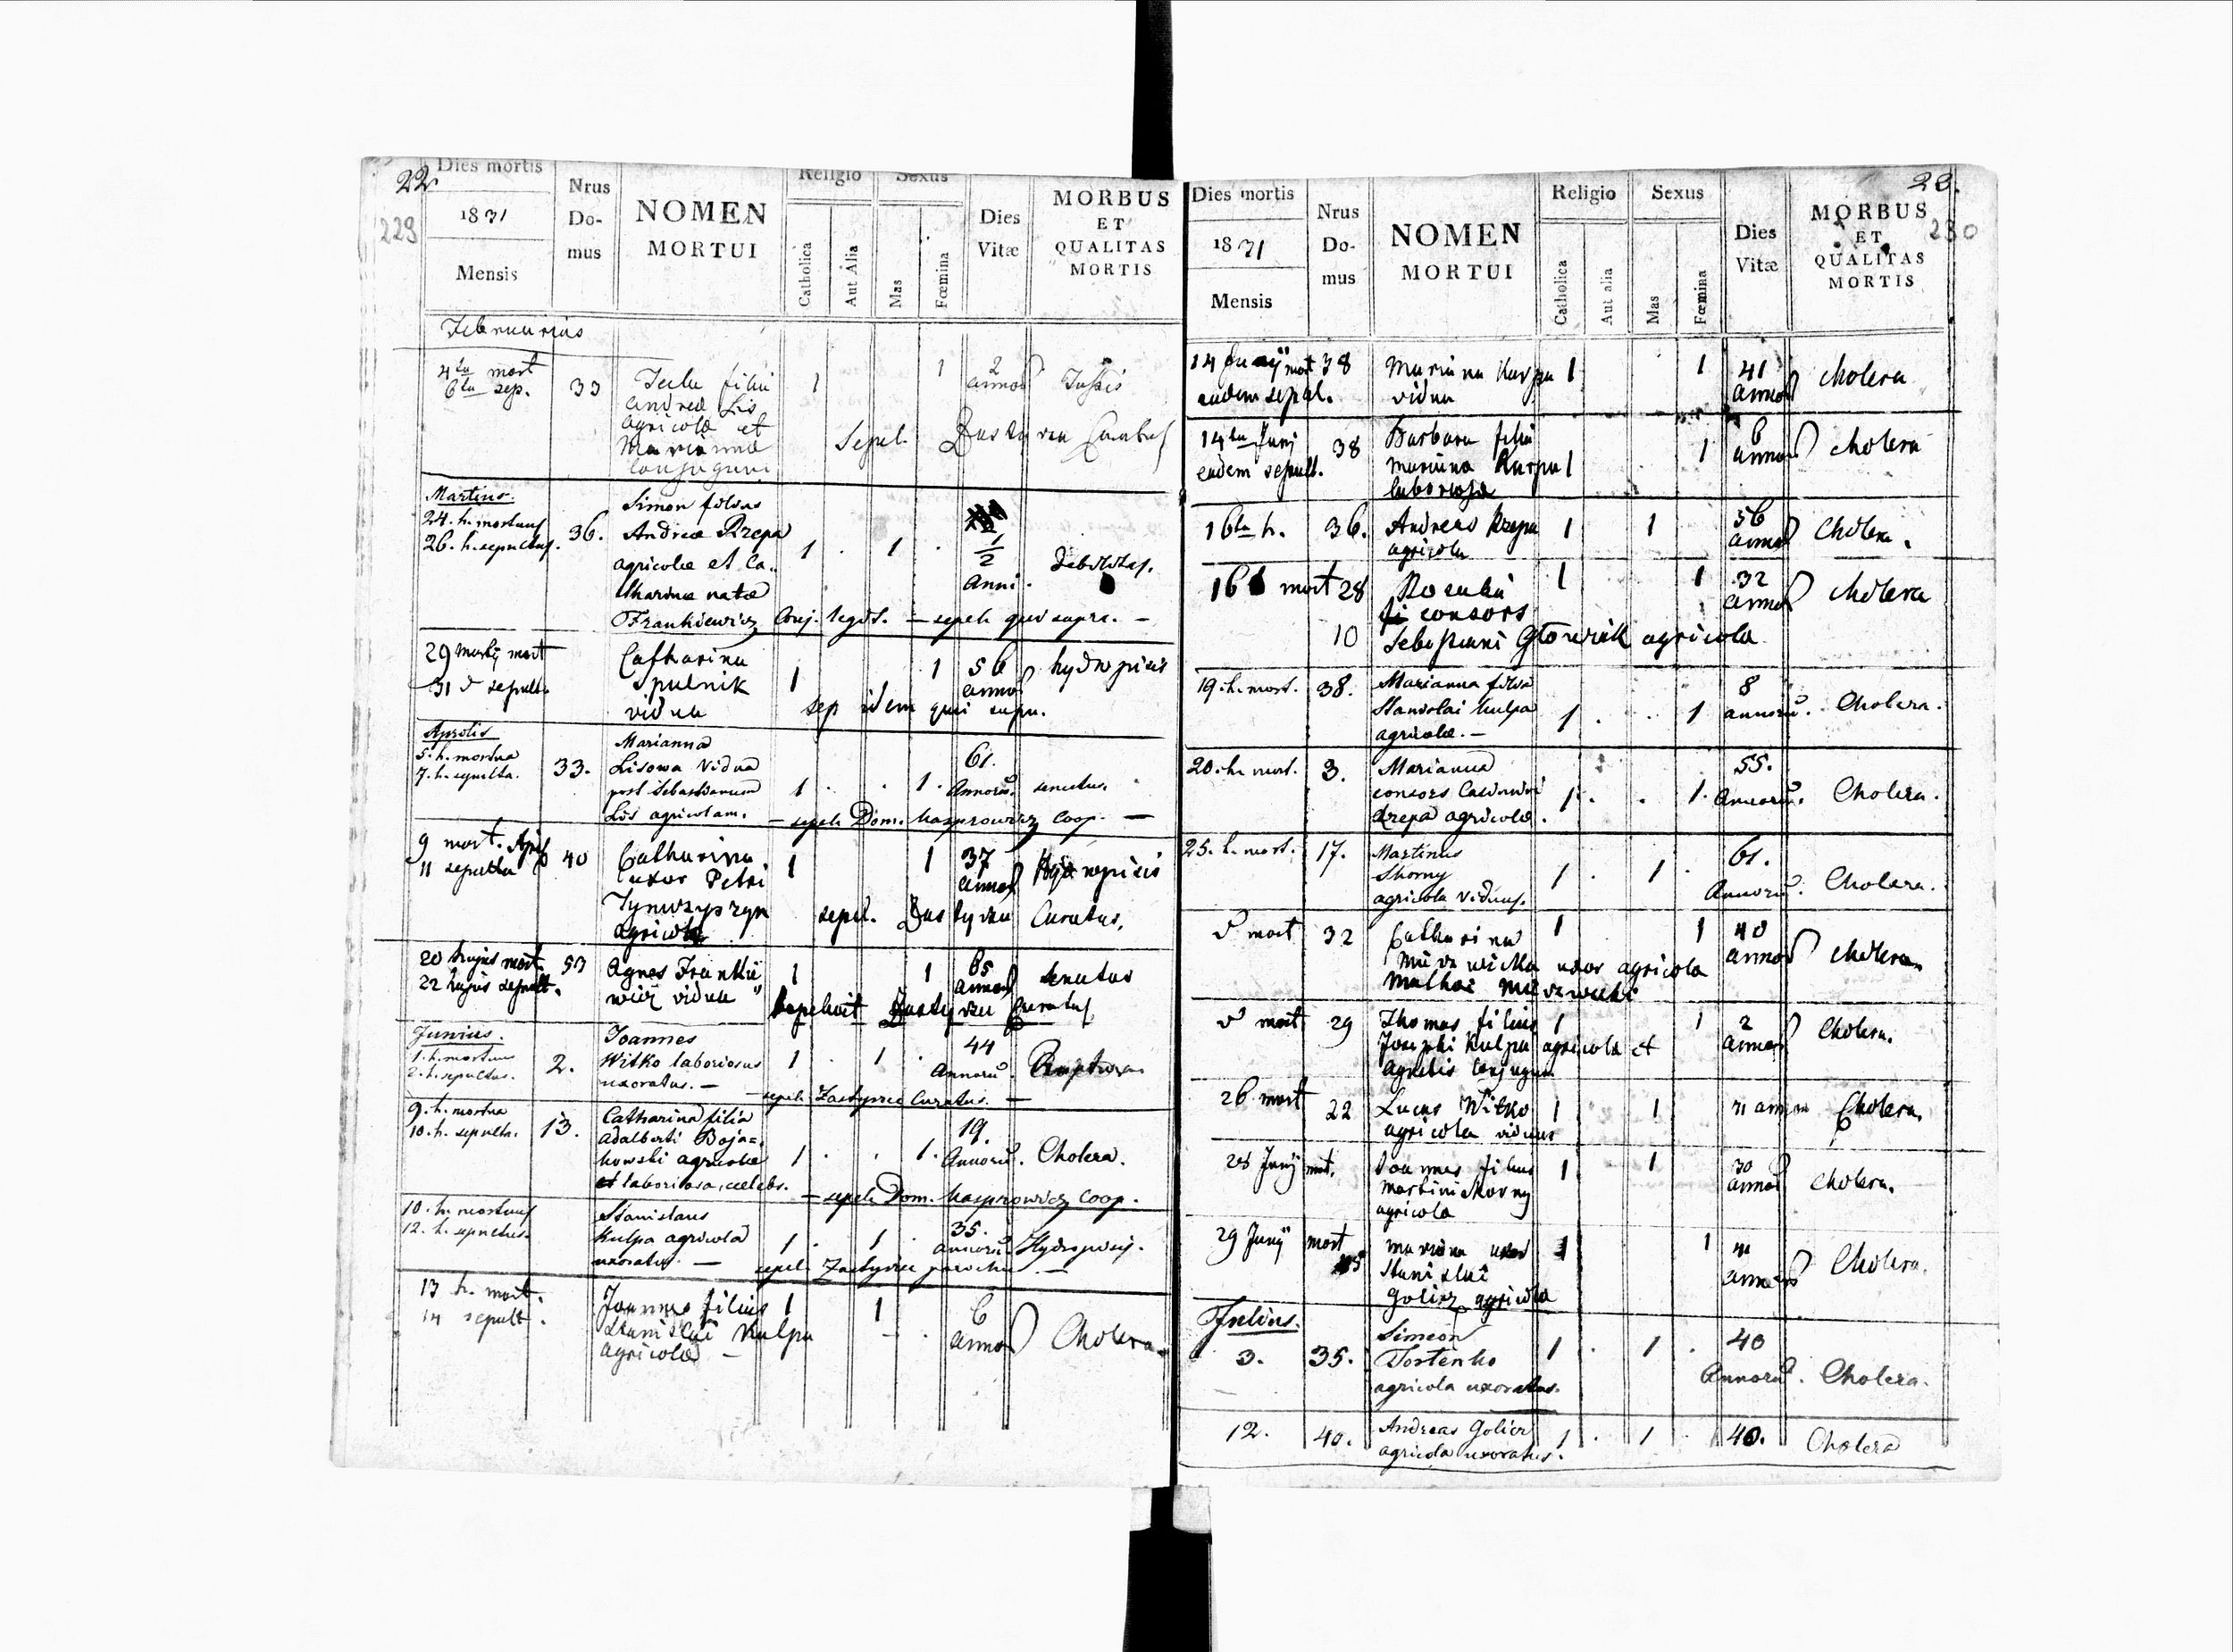 22
229
Dies mortis
1831
Mensis
Nrus
Do-
mus
NOMEN
MORTUI
Religio
Catholica
Aut Alia
Sexus
Mas
Fœmina
Dies
Vitæ
MORBUS
ET
QUALITAS
MORTIS
Februarius
4ta mort 33 filia 1 1 2
6ta sep. Andreæ Lis annor Tussis
agricolæ et
Mariannæ Sepel. Curatus
conjugum
Martius.
24. h. mortuus 36. Simon filius
26. h. sepultus. Andreæ Rzepa 1 . 1 . 1/2
agricolæ et Ca- anni. debilitas.
tharinæ natæ
Frankiewicz Conj. legit. – sepel. qui supra. –
29 Martij mort Catharina 1 1 56 hydropisis
31 d sepult. Spulnik annor
vidua sep idem qui supra.
Aprilis
5. h. mortua Marianna 61.
7. h. sepulta. 33. Lisowa vidua 1 . . 1. Annorū. senectus.
post Sebastianum
Lis agricolam. – sepel. Dom. Kasprowicz Coop. –
9 mort. Apr 40 Catharina 1 1 37
11 sepulta uxor Petri annor
agricola sepel. Curatus.
20 hujus mort. 53 Agnes Franki 1 1 85 senectus
22 hujus sepult. wicz vidua annor
sepelivit Curatus
Junius.
1. h. mortuus 2. Joannes 44
2. h. sepultus. Witko laboriosus 1 . 1 . Annorū.
uxoratus. – – sepel. Curatus. –
9. h. mortua 13. Catharina filia 19.
10. h. sepulta. Adalberti Boja=
kowski agricolæ 1 . . 1. Annorū. Cholera.
et laboriosa, cælebs. – sepel. Dom. Kasprowicz Coop. –
10. h. mortuus Stanislaus 35.
12. h. sepultus. Kulpa agricola 1 . 1 . annorū. Hydropisis.
uxoratus. – sepel. parochus. –
13 h. mort. Joannes filius 1 1 6
14 sepult. Stanislai Kulpa annor Cholera
agricolæ –
23.
230
Dies mortis
1831
Mensis
Nrus
Do-
mus
NOMEN
MORTUI
Religio
Catholica
Aut alia
Sexus
Mas
Fœmina
Dies
Vitæ
MORBUS
ET
QUALITAS
MORTIS
14 Junij mort 38 Marianna Kurpa 1 1 41 cholera
eadem sepul. vidua annor
14ta Junj 38 Barbara filia 1 6 cholera
eadem sepult. Marianna Kurpa 1 annor
laboriosa
16ta h. 36. Andreas Rzepa 1 1 56 Cholera.
agricola annor
16 mort 28 Rosalia 1 1 32 cholera
consors annor
10 Sebastiani Głowiak agricola
19. h. mort. 38. Marianna filia 8
Stanislai Kulpa 1 . . 1 annorū. Cholera.
agricolæ. –
20. h. mort. 3. Marianna 55.
consors Casimiri 1 . . 1. Annorū. Cholera.
Rzepa agricolæ.
25. h. mort. 17. Martinus 61.
Skorny 1 . 1 . Annorū. Cholera.
agricola viduus.
d mort 32 Catharina 1 1 40
uxor agricola annor cholera
d mort 29 Thomas filius 1 1 2 Cholera.
Josephi Kulpa agricola et annor
Agnetis conjugum
26 mort 22 Lucas Witko 1 1 Cholera.
agricola viduus
Junij mort. Joannes filius 1 1 30
Martini Skorny annor Cholera.
agricola
29 Junij mort Marianna uxor 1 1
Stanislai annor Cholera.
Golicz agricola
Julius.
3. 35. Simeon 40
Tostenko 1 . 1 . Annorū. Cholera.
agricola uxoratus.
12. 40. Andreas Golicz 1 . 1 40. Cholera
agricola uxoratus.